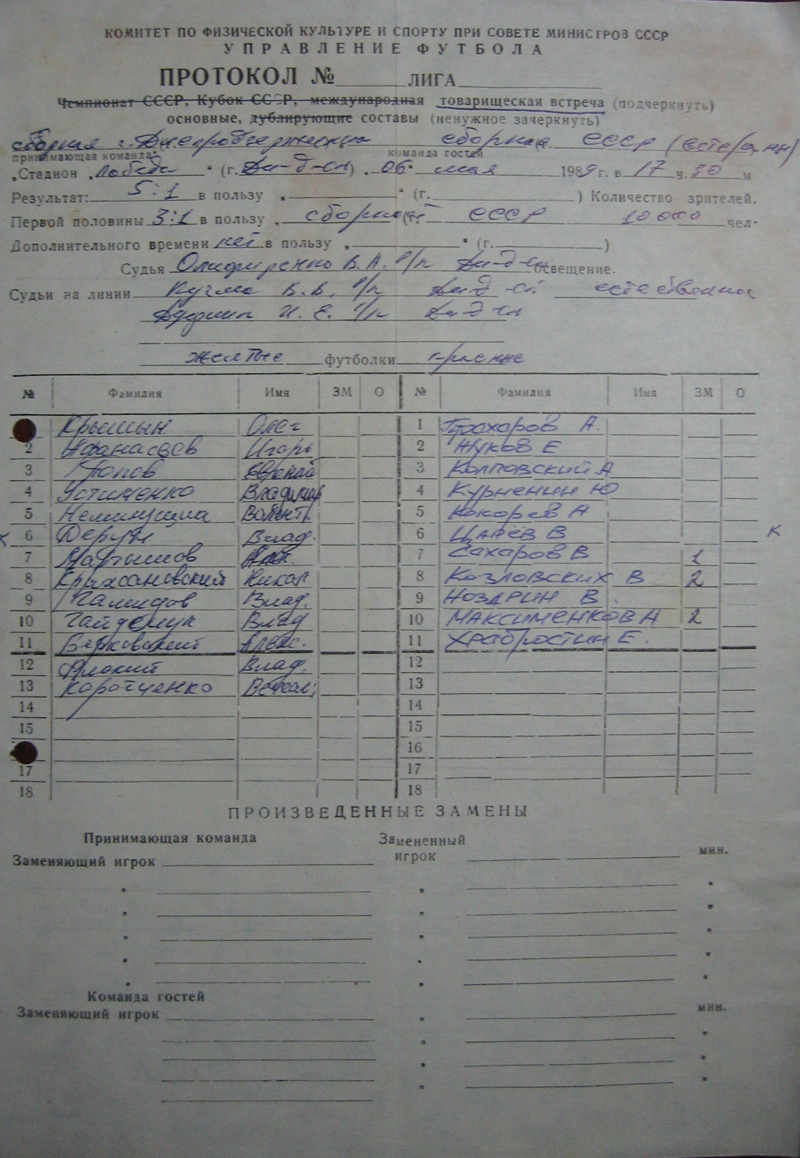 КОМИТЕТ ПО ФИЗИЧЕСКОЙ КУЛЬТУРЕ И СПОРТУ ПРИ СОВЕТЕ МИНИСТРОВ СССР
УПРАВЛЕНИЕ ФУТБОЛА
ПРОТОКОЛ № ЛИГА
Чемпионат СССР, Кубок СССР, международная товарищеская встреча (подчеркнуть)
основные, дублирующие составы (ненужное зачеркнуть)
сборная г. Днепродзержинска сборная СССР (ветераны)
принимающая команда команда гостей
Стадион "Победа" (г. Дн-д-ск) 06 мая 1989 г. в 17 ч. 30 м
Результат: 5:1 в пользу " (г. ) Количество зрителей.
Первой половины 3:1 в пользу сборной (г. СССР 10000 чел.
Дополнительного времени нет в пользу " (г. )
Судья Олифиренко В.А. р/к Дн-д-ск Освещение.
Судьи на линии Кузма В.В. р/к Дн-д-ск естественное
И. Е. Дн-д-ск
желтые футболки красные
№ Фамилия Имя ЗМ О № Фамилия Имя ЗМ О
Крышын Олег 1 Прохоров А.
2 Афанасьев Игорь 2 Жуков Е
3 Попов Евгений 3 Колповский А
4 Устименко Владимир 4 Курненин Ю
5 Неминущиа Валент. 5 Кокорев А
К 6 Дерун Влад. 6 Царёв В К
7 Мартышов 7 Сахаров В 1
8 Крыжановский Никол 8 Козловских В 2
9 Галмидов Влад. 9 Ноздрин В.
10 Гайдамук Влад 10 Максименков А 2
11 Берковский Алекс. 11 Храбростин Е.
12 Влад. 12
13 Коротченко 13
14 14
15 15
16
17 17
18 18
ПРОИЗВЕДЕННЫЕ ЗАМЕНЫ
Принимающая команда Замененный
Заменяющий игрок игрок мин.
Команда гостей
Заменяющий игрок мин.